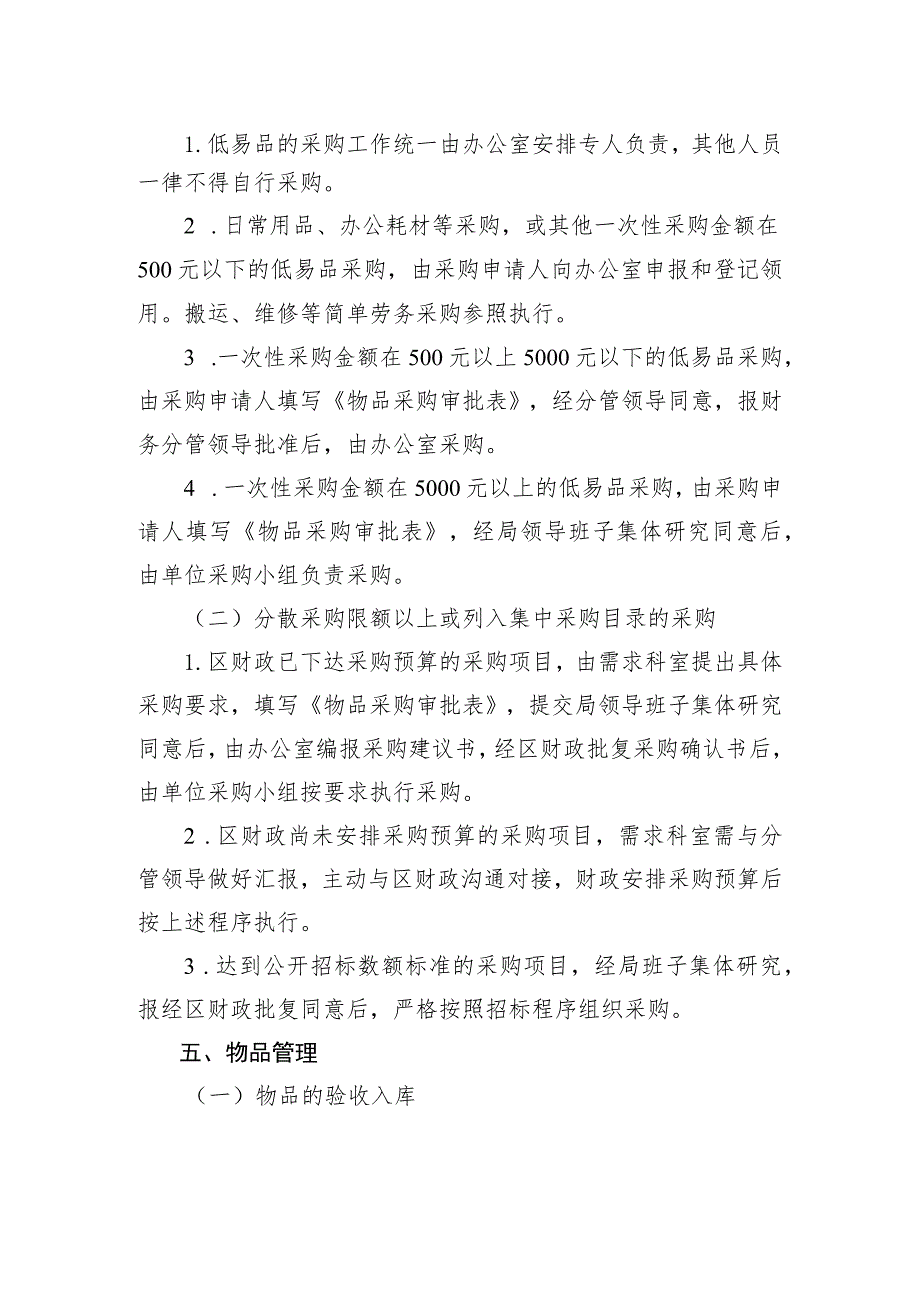 1. 低易品的采购工作统一由办公室安排专人负责，其他人员
一律不得自行采购。
2 .日常用品、办公耗材等采购，或其他一次性采购金额在
500 元以下的低易品采购，由采购申请人向办公室申报和登记领
用。搬运、维修等简单劳务采购参照执行。
3 .一次性采购金额在 500 元以上 5000 元以下的低易品采购，
由采购申请人填写《物品采购审批表》，经分管领导同意，报财
务分管领导批准后，由办公室采购。
4 .一次性采购金额在 5000 元以上的低易品采购，由采购申
请人填写《物品采购审批表》，经局领导班子集体研究同意后，
由单位采购小组负责采购。
（二）分散采购限额以上或列入集中采购目录的采购
1. 区财政已下达采购预算的采购项目，由需求科室提出具体
采购要求，填写《物品采购审批表》，提交局领导班子集体研究
同意后，由办公室编报采购建议书，经区财政批复采购确认书后，
由单位采购小组按要求执行采购。
2 . 区财政尚未安排采购预算的采购项目，需求科室需与分
管领导做好汇报，主动与区财政沟通对接，财政安排采购预算后
按上述程序执行。
3 . 达到公开招标数额标准的采购项目，经局班子集体研究，
报经区财政批复同意后，严格按照招标程序组织采购。
五、物品管理
（一）物品的验收入库